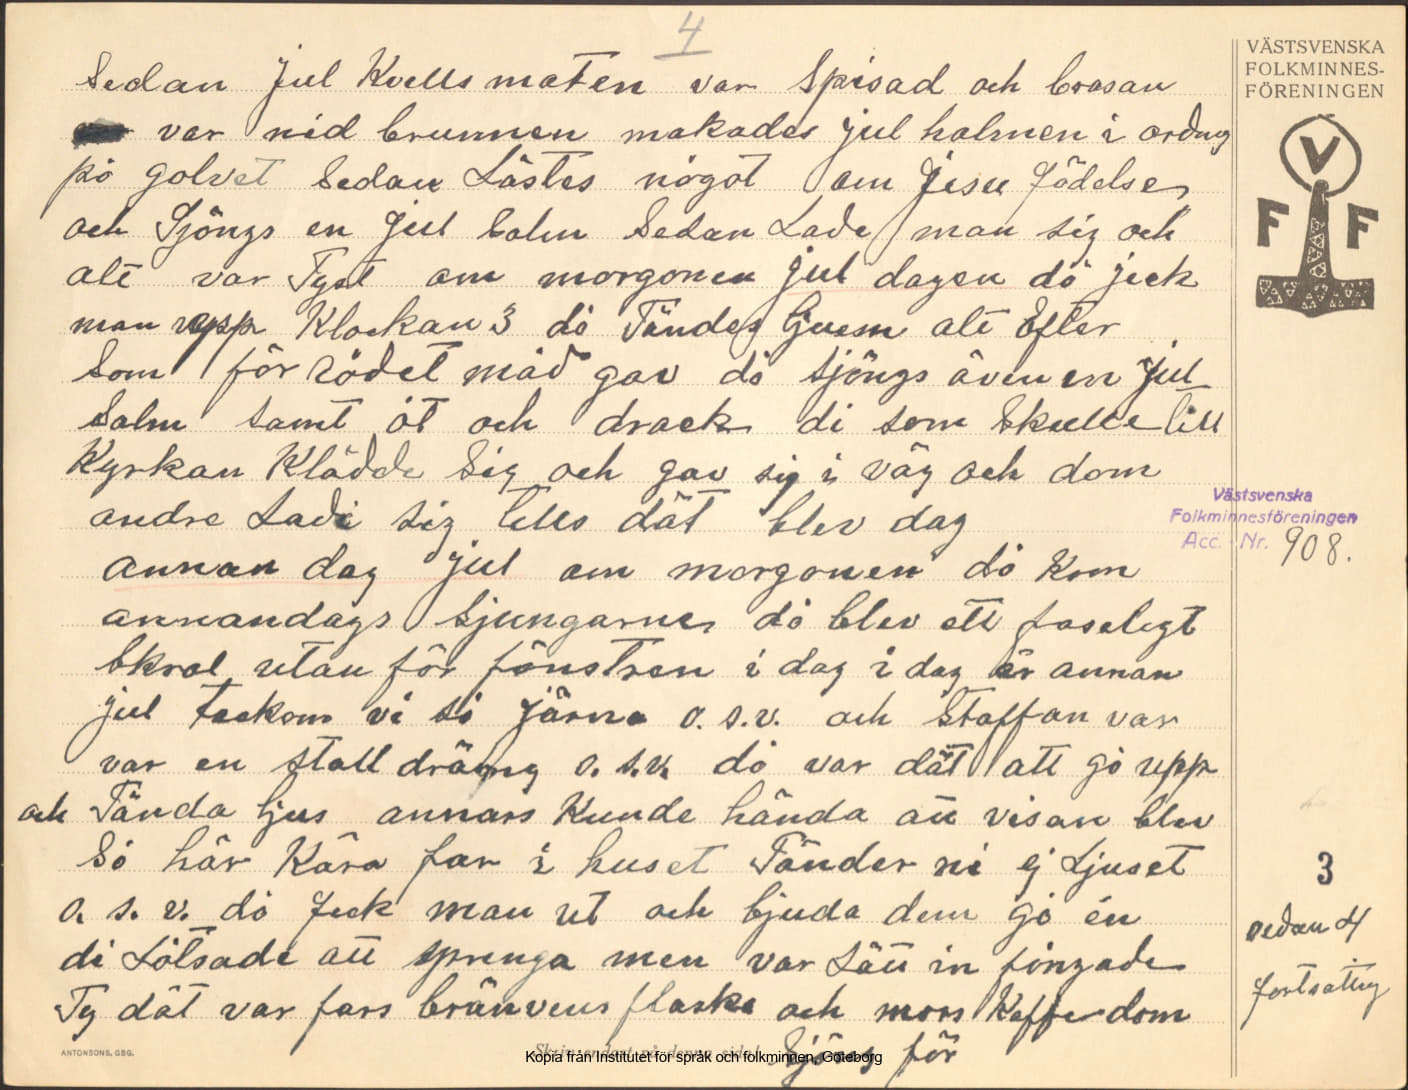 4
VÄSTSVENSKA
FOLKMINNES-
FÖRENINGEN
V
F F
Sedan Jul Kvells maten var Spisad och brasan
var nid brunnen makades jul halmen i ordning
på golvet Sedan Lästes något om Jesu födelse
och Sjöngs en Jul Salm Sedan Lade man sig och
alt var Tyst om morgonen jul dagen då jeck
man upp Klockan 3 då Tändes ljusen alt Efter
Som förrådet mád gav då sjöngs även en Jul
Salm samt åt och drack di som Skulle till
Kyrkan Klädde Sig och gav sig i väg och dom
andre Lade sig tills dät blev dag
annan dag jul om morgonen då kom
annandags Sjungarne då blev ett faseligt
Skrol utan för fönstren i dag i dag är annan
jul tackom vi så järna o.s.v. och Staffan var
var en stall dräng o.s.v. då var dät att gå upp
och Tända ljus annars Kunde hända att visan blev
Så här Kära far i huset Tänder ni ej Ljuset
o. s. v. då feck man ut och bjuda dem gå én
di Låtsade att sprenga men var Lätt in fångade
Ty dät var fars bränvens flaska och mors Kaffe dom
Sjöng för
Västsvenska
Folkminnesföreningen
Acc. Nr. 908.
3
sedan 4
fortsättng
ANTONSONS, GBG.
Skriv endast på denna sida!
Kopia från Institutet för språk och folkminnen, Göteborg